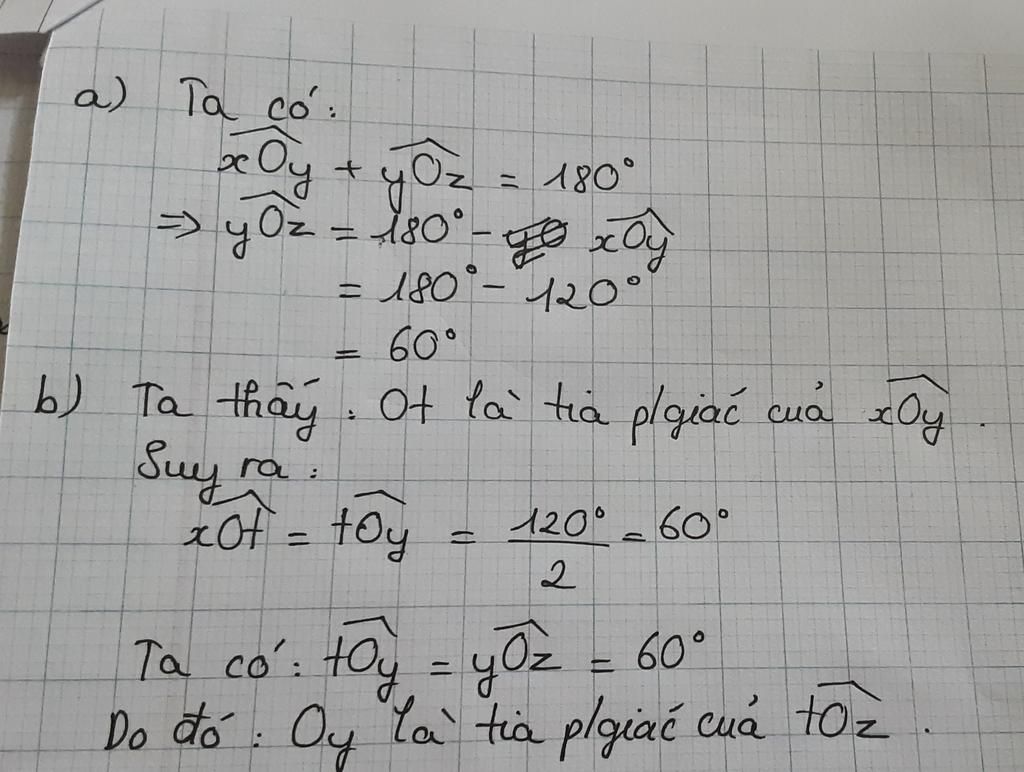 a) Ta có:
xOy + yOz = 180°
=> yOz = 180° - xOy
= 180° - 120°
= 60°
b) Ta thấy: Ot là tia p/giác của xOy.
Suy ra:
xOt = tOy = 120°/2 = 60°
Ta có: tOy = yOz = 60°
Do đó: Oy là tia p/giác của tOz.